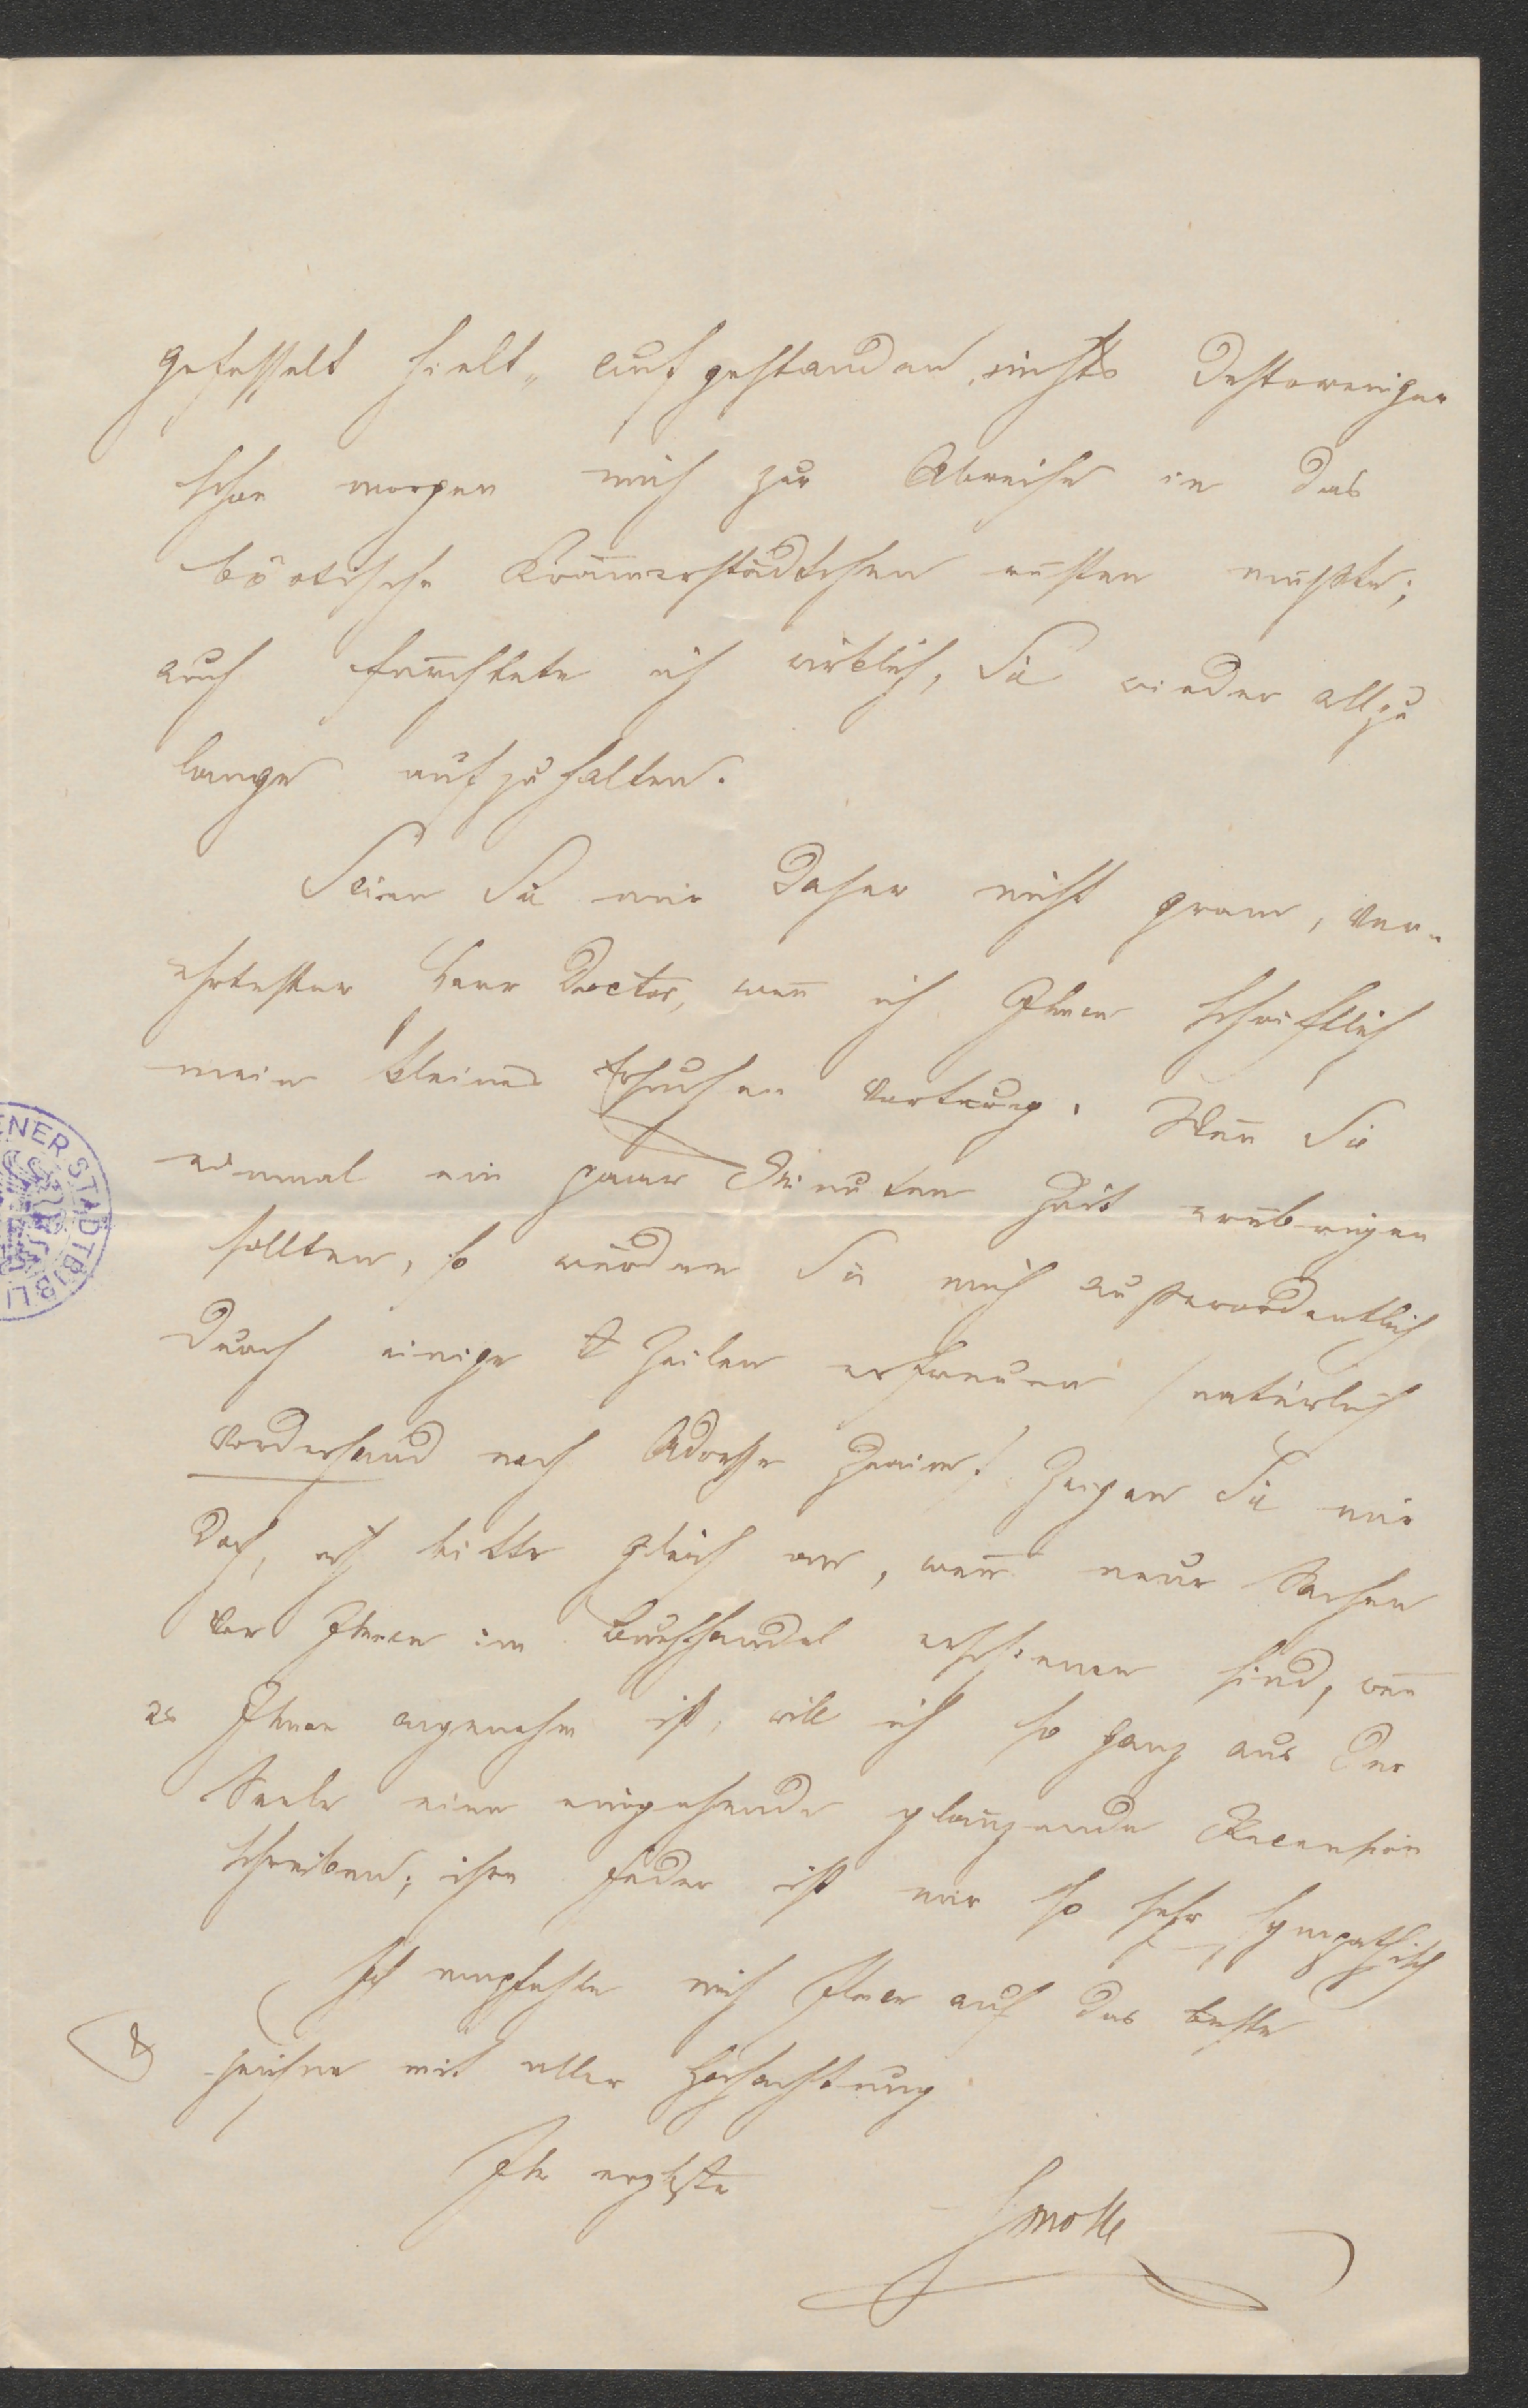 gefesselt hielt„ aufgestanden, nichts destoweniger
schon morgen mich zur Abreise in das
böotische Krämerstädtchen rüsten mußte;
auch fürchtete ich wirklich, Sie wieder allzu
lange aufzuhalten.
Seien Sie mir daher nicht gram, ver-
ehrtester Herr Doctor, wenn ich Ihnen schriftlich
mein kleines Ersuchen vortrug. Wenn Sie
einmal ein paar Minuten Zeit erübrigen
sollten, so würden Sie mich außerordentlich
durch einige Zeilen erfreuen (natürlich
vorderhand nach Adresse Znaim). Zeigen Sie mir
doch, ich bitte gleich an, wenn neue Sachen
von Ihnen im Buchhandel erschienen sind, wenn
es Ihnen angenehm ist, will ich so ganz aus der
Seele eine eingehende glänzende Recension
schreiben; ihre Feder ist mir so sehr sympathisch
Ich empfehle mich Ihnen auf das beste
& zeichne mit aller Hochachtung
Ihr ergbste
Smolle
ENER STADTBIBLI